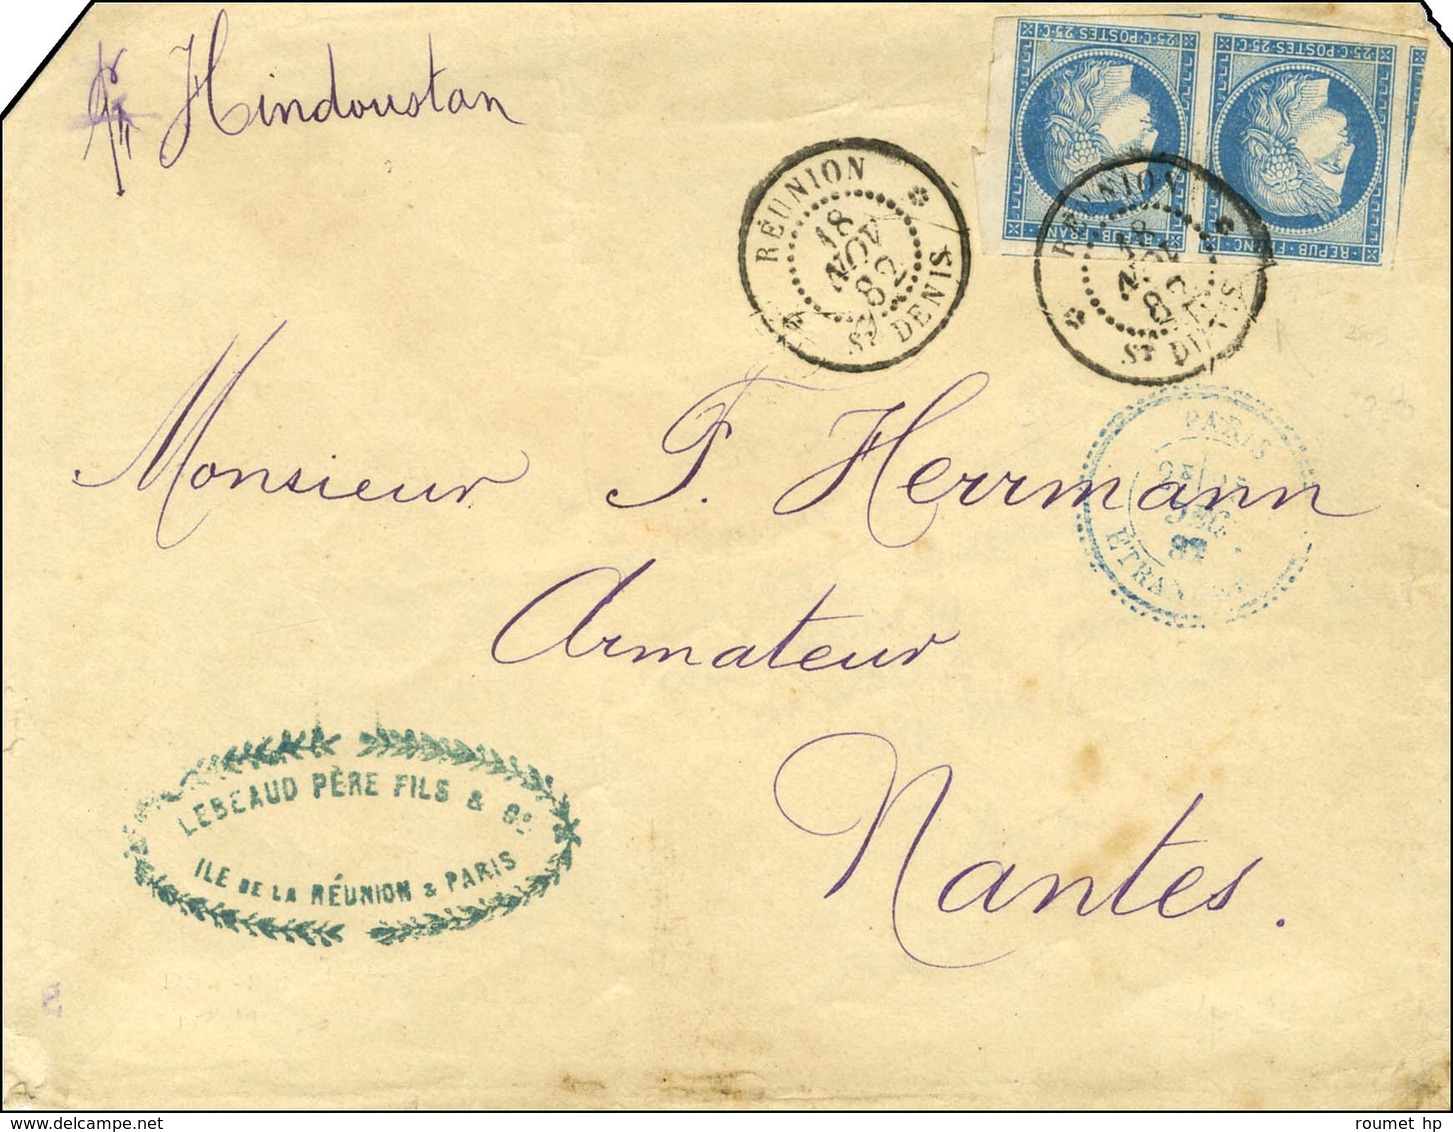 pr Hindoustan
25·C·POSTES·25·C
25·C·POSTES·25·C
REPUB·FRAN
REPUB·F NC
RÉUNION
18
NOV
82
ST DENIS
RÉUNION
18
NOV
82
ST DENIS
Monsieur F. Herrmann
PARIS
DEC
82
ETRANGER
Armateur
Nantes.
LEBEAUD PÈRE FILS & Cº
ILE DE LA RÉUNION & PARIS
roumet hp